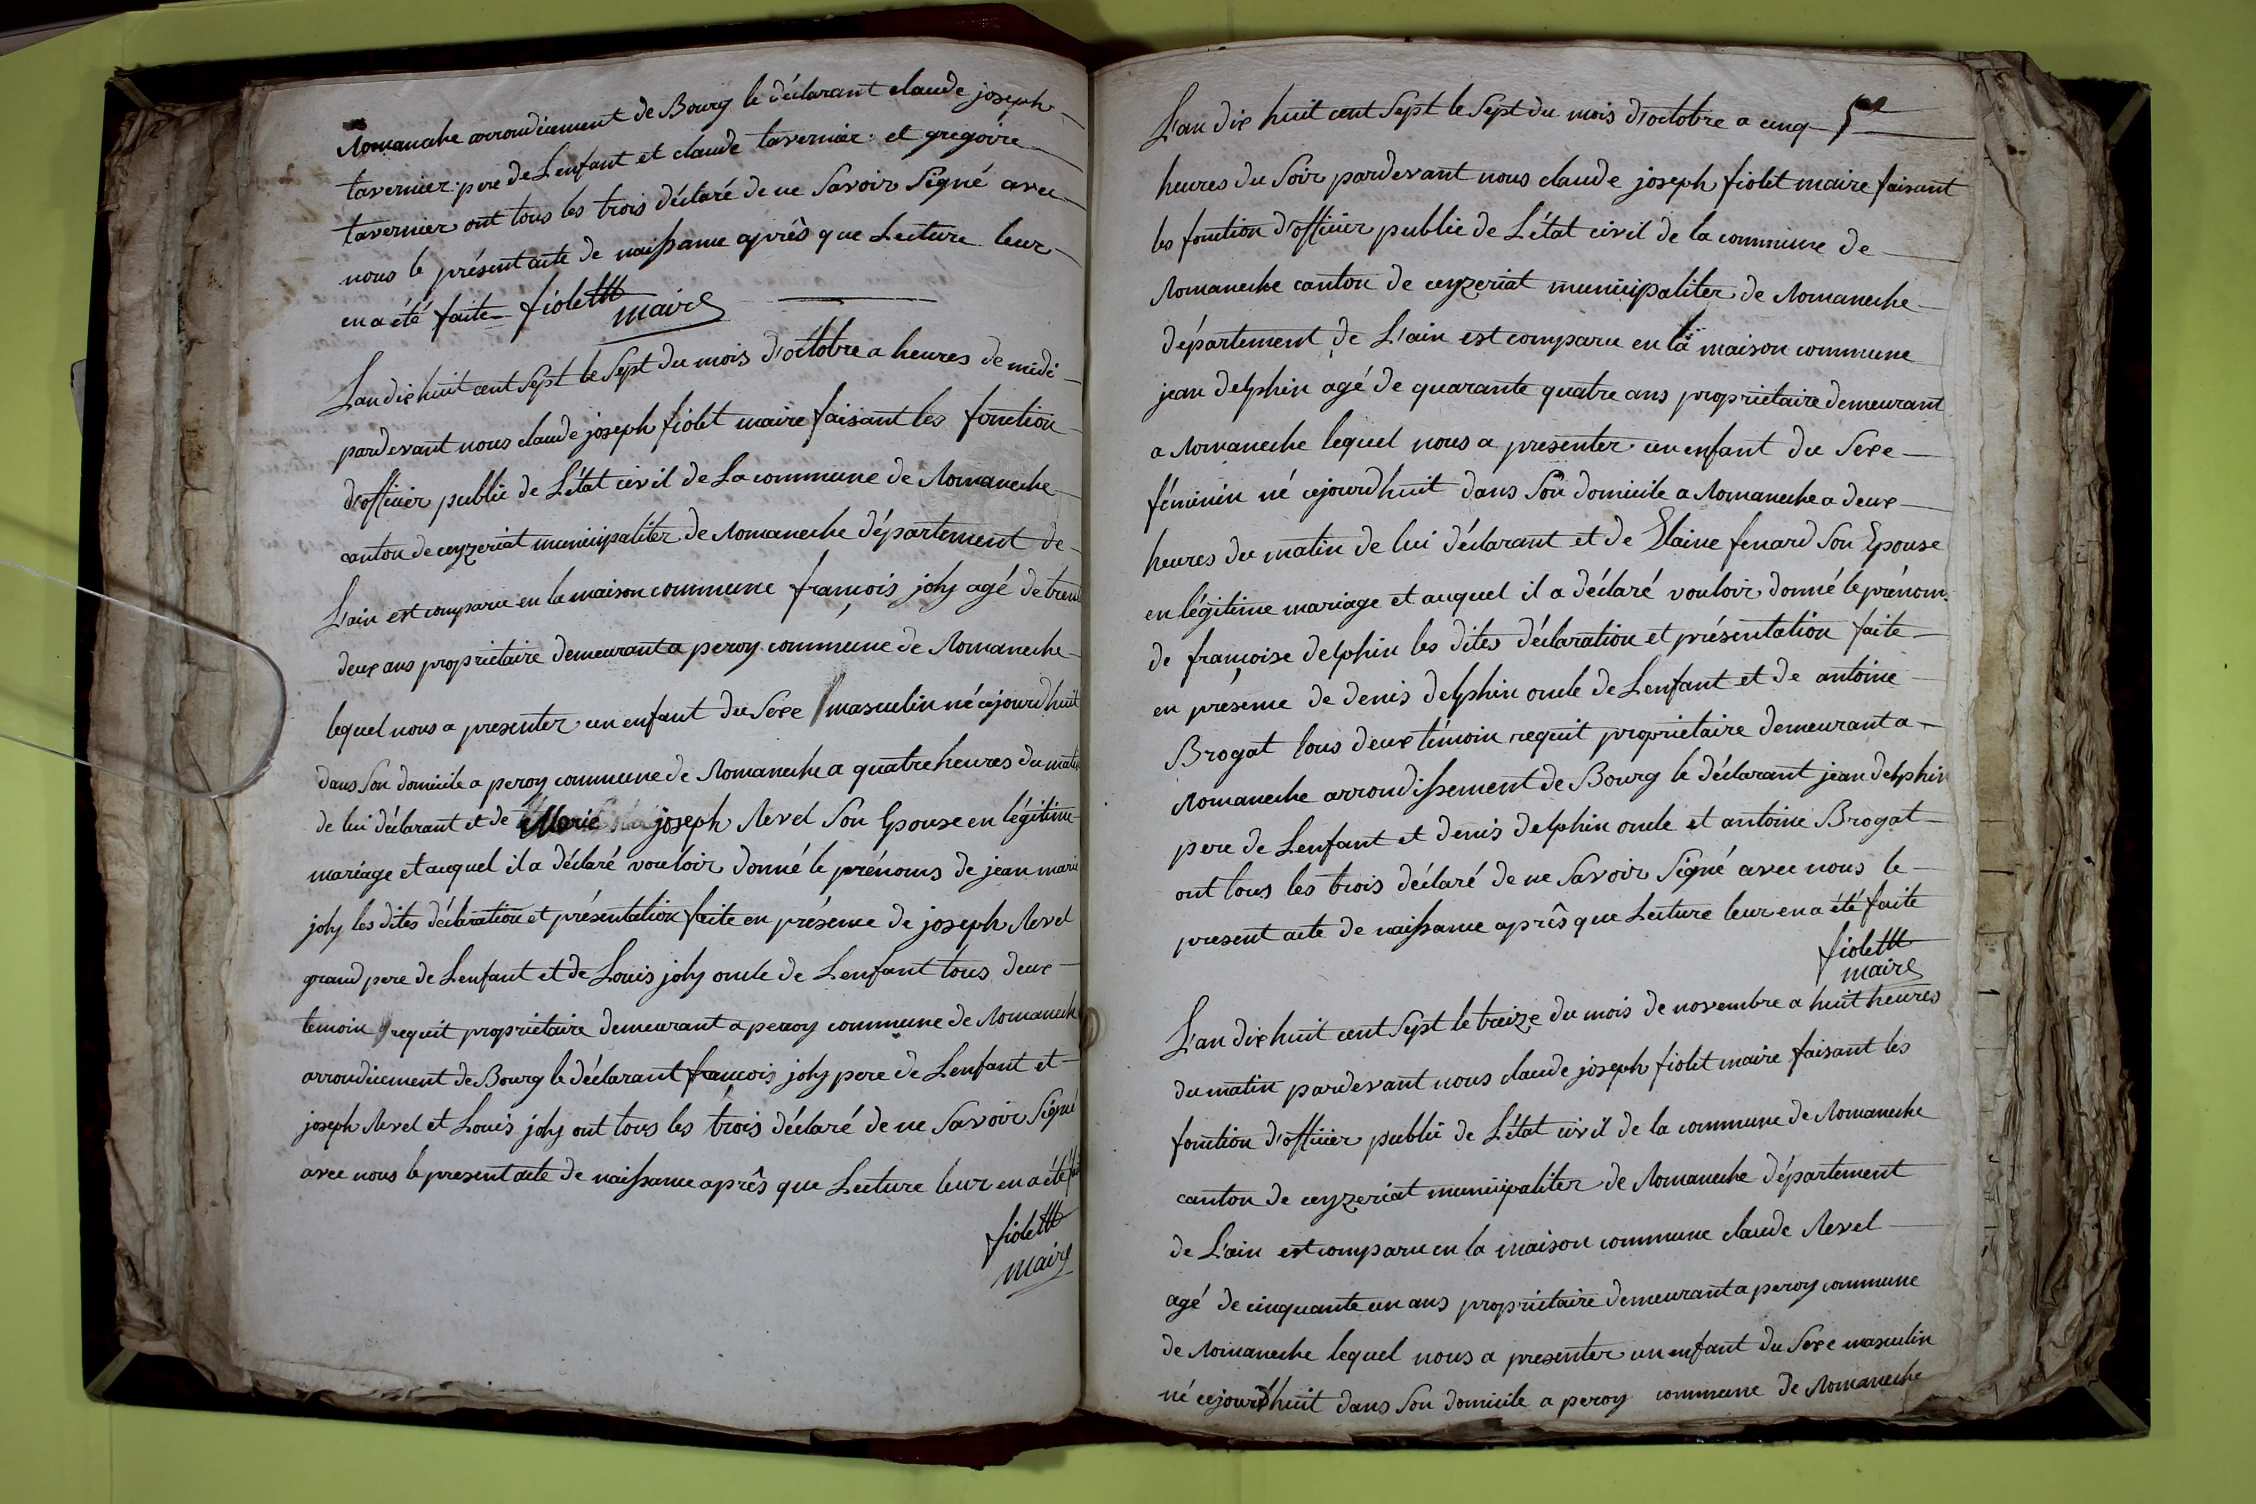 Romaneche arrondicement de Bourg le déclarant claude joseph
tavernier pere de Lenfant et claude tavernier et gregoire
tavernier ont tous les trois déclaré de ne Savoir Signé avec
nous le présent acte de naissance après que Lecture leur
en a été faite fiolet
maire
L'an dix huit cent Sept le Sept du mois d'octobre a heures de midi
pardevant nous claude joseph fiolet maire faisant les fonction
d'officier public de L'état civil de La commune de Romaneche
canton de ceyzeriat municipaliter de Romaneche département de
L'ain est comparu en la maison commune françois joly agé de trente
deux ans propriétaire demeurant a peroy commune de Romaneche
lequel nous a presenter un enfant du Sexe masculin né cejourdhuit
dans Son domicile a peroy commune de Romaneche a quatre heures du matin
de lui déclarant et de Marie joseph Revel Son Epouse en légitime
mariage et auquel il a déclaré vouloir donné le prénoms de jean marie
joly les dites déclaration et présentation faite en présence de joseph Revel
grand pere de Lenfant et de Louis joly oncle de Lenfant tous deux
temoin requit propriétaire demeurant a peroy commune de Romaneche
arrondicment de Bourg le déclarant françois joly pere de Lenfant et
joseph Revel et Louis joly ont tous les trois déclaré de ne Savoir Signé
avec nous le present acte de naissance après que Lecture leur en a été
fiolet
maire
5
L'an dix huit cent Sept le Sept du mois d'octobre a cinq
heures du Soir pardevant nous claude joseph fiolet maire faisant
les fonction d'officier public de L'état civil de la commune de
Romaneche canton de ceyzeriat municipaliter de Romaneche
département de L'ain est comparu en la maison commune
jean delphin agé de quarante quatre ans propriétaire demeurant
a Romaneche lequel nous a presenter un enfant du Sexe
féminin né cejourdhuit dans Son domicile a Romaneche a deux
heures du matin de lui déclarant et de Elaine fenard Son Epouse
en légitime mariage et auquel il a déclaré vouloir donné le prénom
de françoise delphin les dites déclaration et présentation faite
en présence de denis delphin oncle de Lenfant et de antoine
Brogat tous deux témoin requit propriétaire demeurant a
Romaneche arrondissement de Bourg le déclarant jean delphin
pere de Lenfant et denis delphin oncle et antoine Brogat
ont tous les trois déclaré de ne Savoir Signé avec nous le
present acte de naissance après que Lecture leur en a été faite
fiolet
maire
L'an dix huit cent Sept le treize du mois de novembre a huit heures
du matin pardevant nous claude joseph fiolet maire faisant les
fonction d'officier public de L'état civil de la commune de Romaneche
canton de ceyzeriat municipaliter de Romaneche département
de L'ain est comparu en la maison commune claude Revel
agé de cinquante un ans propriétaire demeurant a peroy commune
de Romaneche lequel nous a presenter un enfant du Sexe masculin
né cejourdhuit dans Son domicile a peroy commune de Romaneche